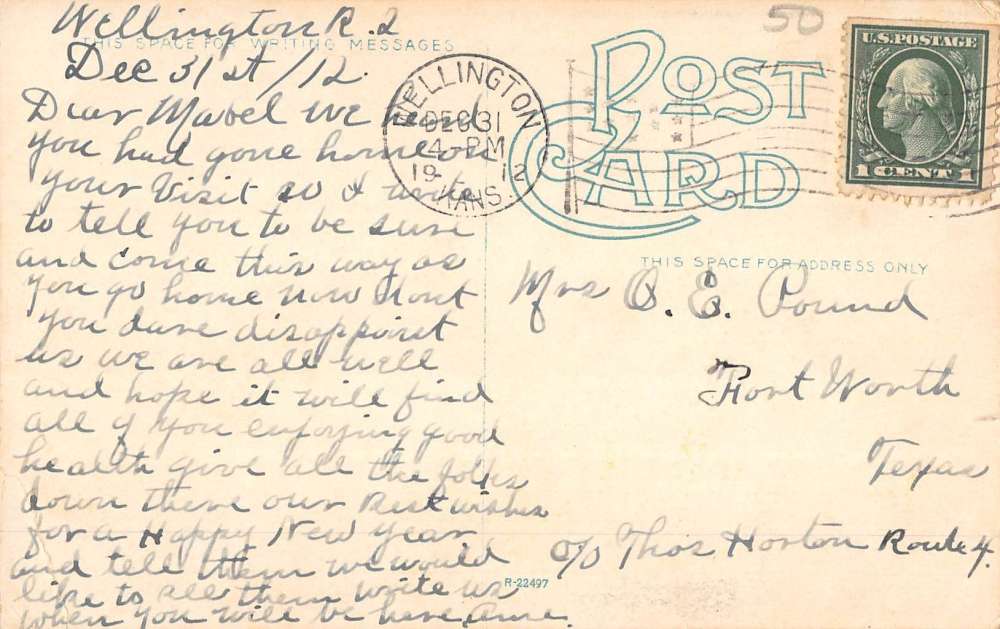 Wellington R. 2
THIS SPACE FOR WRITING MESSAGES
Dec 31st/12.
Dear Mabel we heard
you had gone home on
your Visit so I write
to tell you to be sure
and come this way as
you go home now dont
you dare disappoint
us we are all well
and hope it will find
all of you enjoying good
health give all the folks
down there our Best wishes
for a Happy New year
and tell them we would
like to see them write us
when you will be here
50
WELLINGTON
DEC 31
4-PM
1912
KANS.
POST
CARD
U.S. POSTAGE
1 CENT 1
THIS SPACE FOR ADDRESS ONLY
Mrs O. E. Pound
Fort Worth
Texas
c/o Thos Horton Route 4.
R-22497